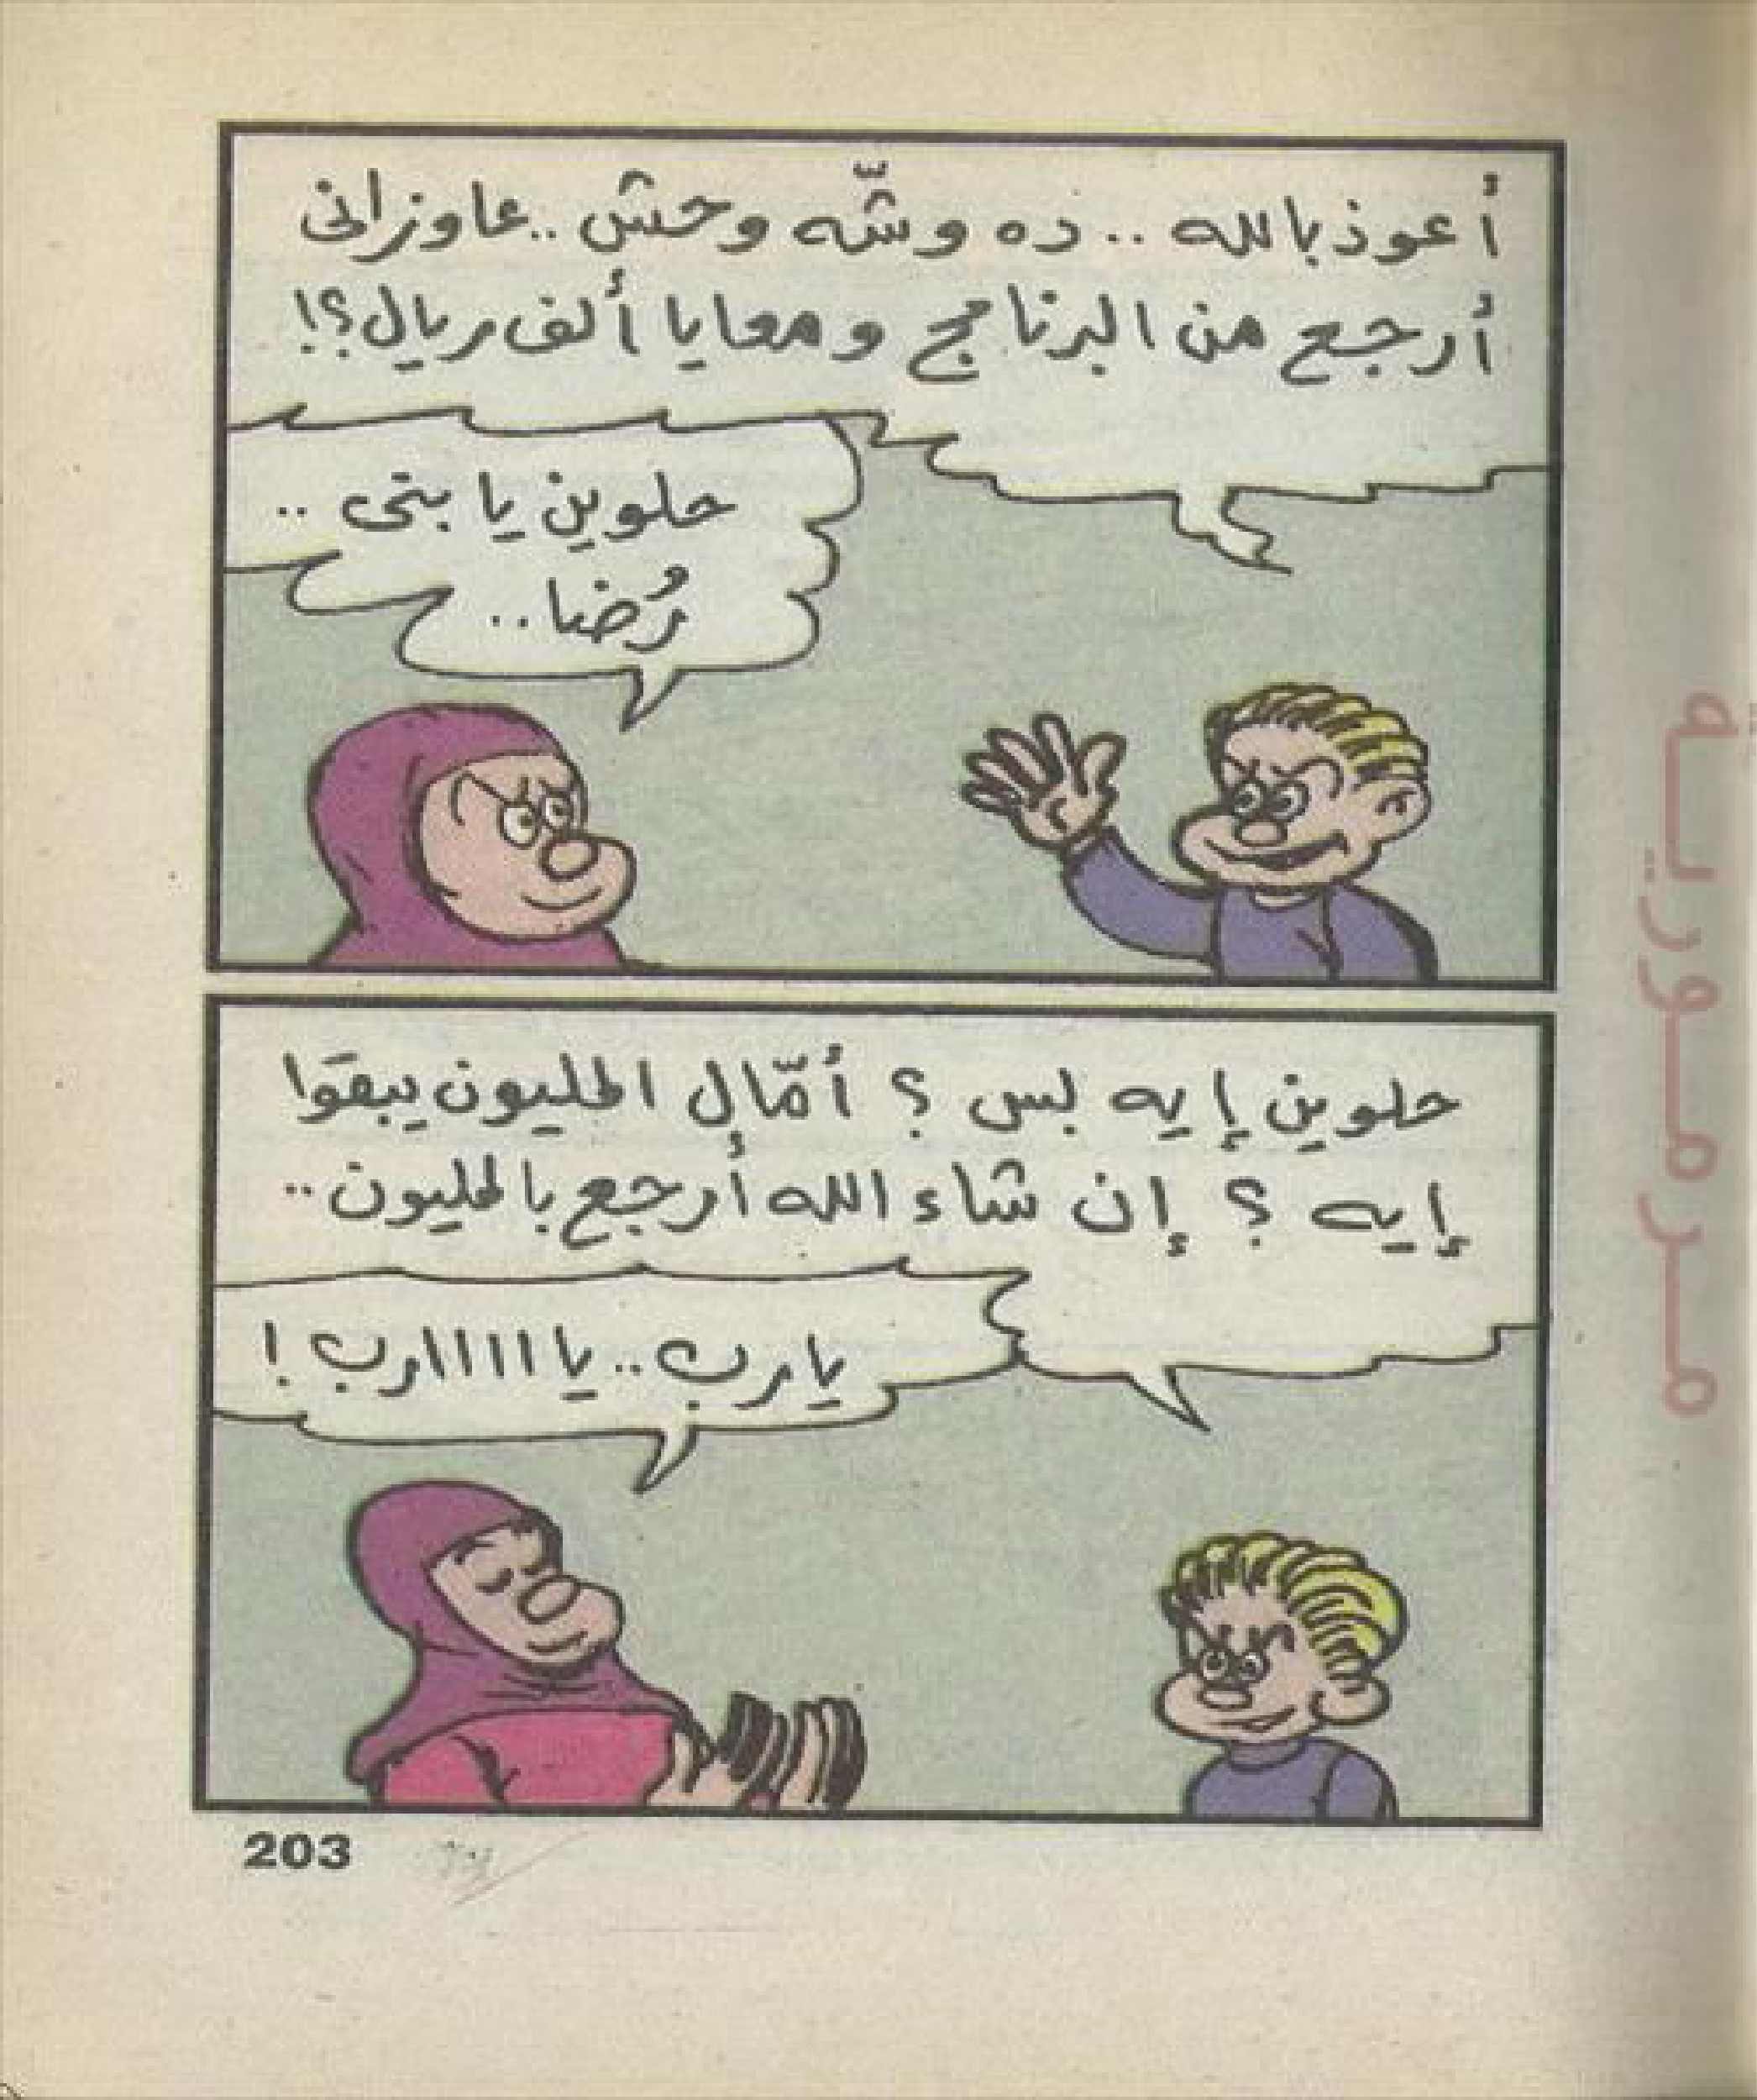 أعوذ بالله .. ده وشّه وحش .. عاوزانى
أرجع من البرنامج ومعايا ألف ريال؟!
حلوين يا بنتى ..
رُضا ..
حلوين إيه بس ؟ أمّال المليون يبقوا
إيه ؟ إن شاء الله أرجع بالمليون ..
يارب .. يا اااارب !
203
مرمورية